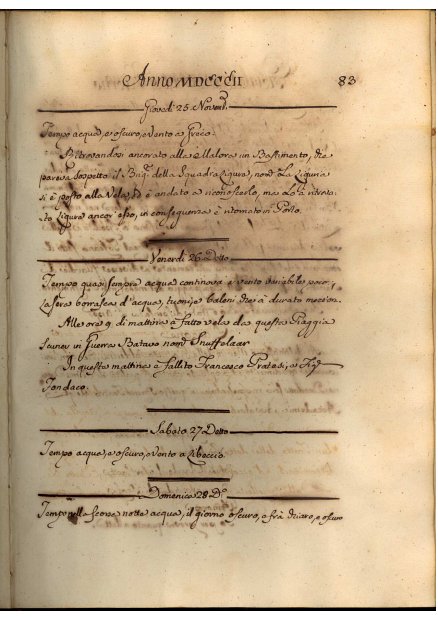 Anno MDCCCII
83
Giovedì 25 Novem.
Tempo acqua, e oscuro, e vento a Greco.
Ritrovandosi ancorato alla Mallora un Bastimento, che
pareva sospetto il Brig. della Squadra Ligura, nom. La Liguria
si è posto alla Vela, ed è andato a riconoscerlo, ma
Ligure ancor esso, in conseguenza è ritornato in Porto.
Venerdì 26 Detto
Tempo quasi sempre acqua continova e vento variabile
sera borrasca d'acqua, tuoni, e baleni che à durato
Alle ore 9. di mattina à fatto vela da questa Piaggia
in Guerra Batavo nom. Snuffelaar
In questa mattina è fallito Francesco Pratesi, e
Fondaco.
Sabato 27 Detto
Tempo acqua, e oscuro, e vento a Libeccio.
Domenica 28 D.
Tempo nella scorsa notte acqua, il giorno oscuro, e frà chiaro, e oscuro